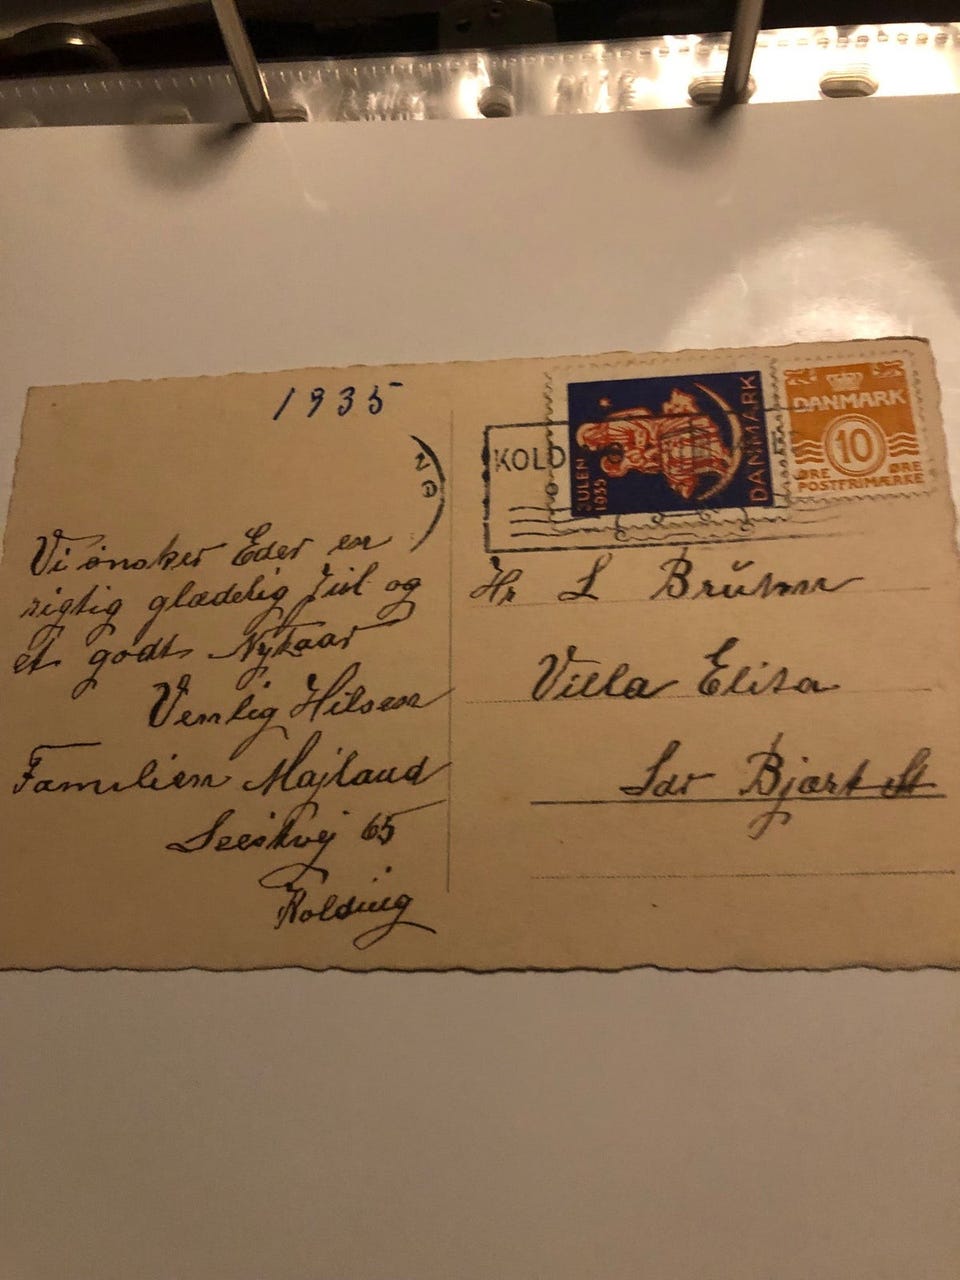 1935
Vi ønsker Eder en
rigtig glædelig Jul og
et godt Nytaar
Venlig Hilsen
Familien Majland
65
Kolding
KOLD
JULEN
1935
DANMARK
DANMARK
10
ØRE ØRE
POSTFRIMÆRKE
Hr L
Villa Elisa
Sdr Bjært St